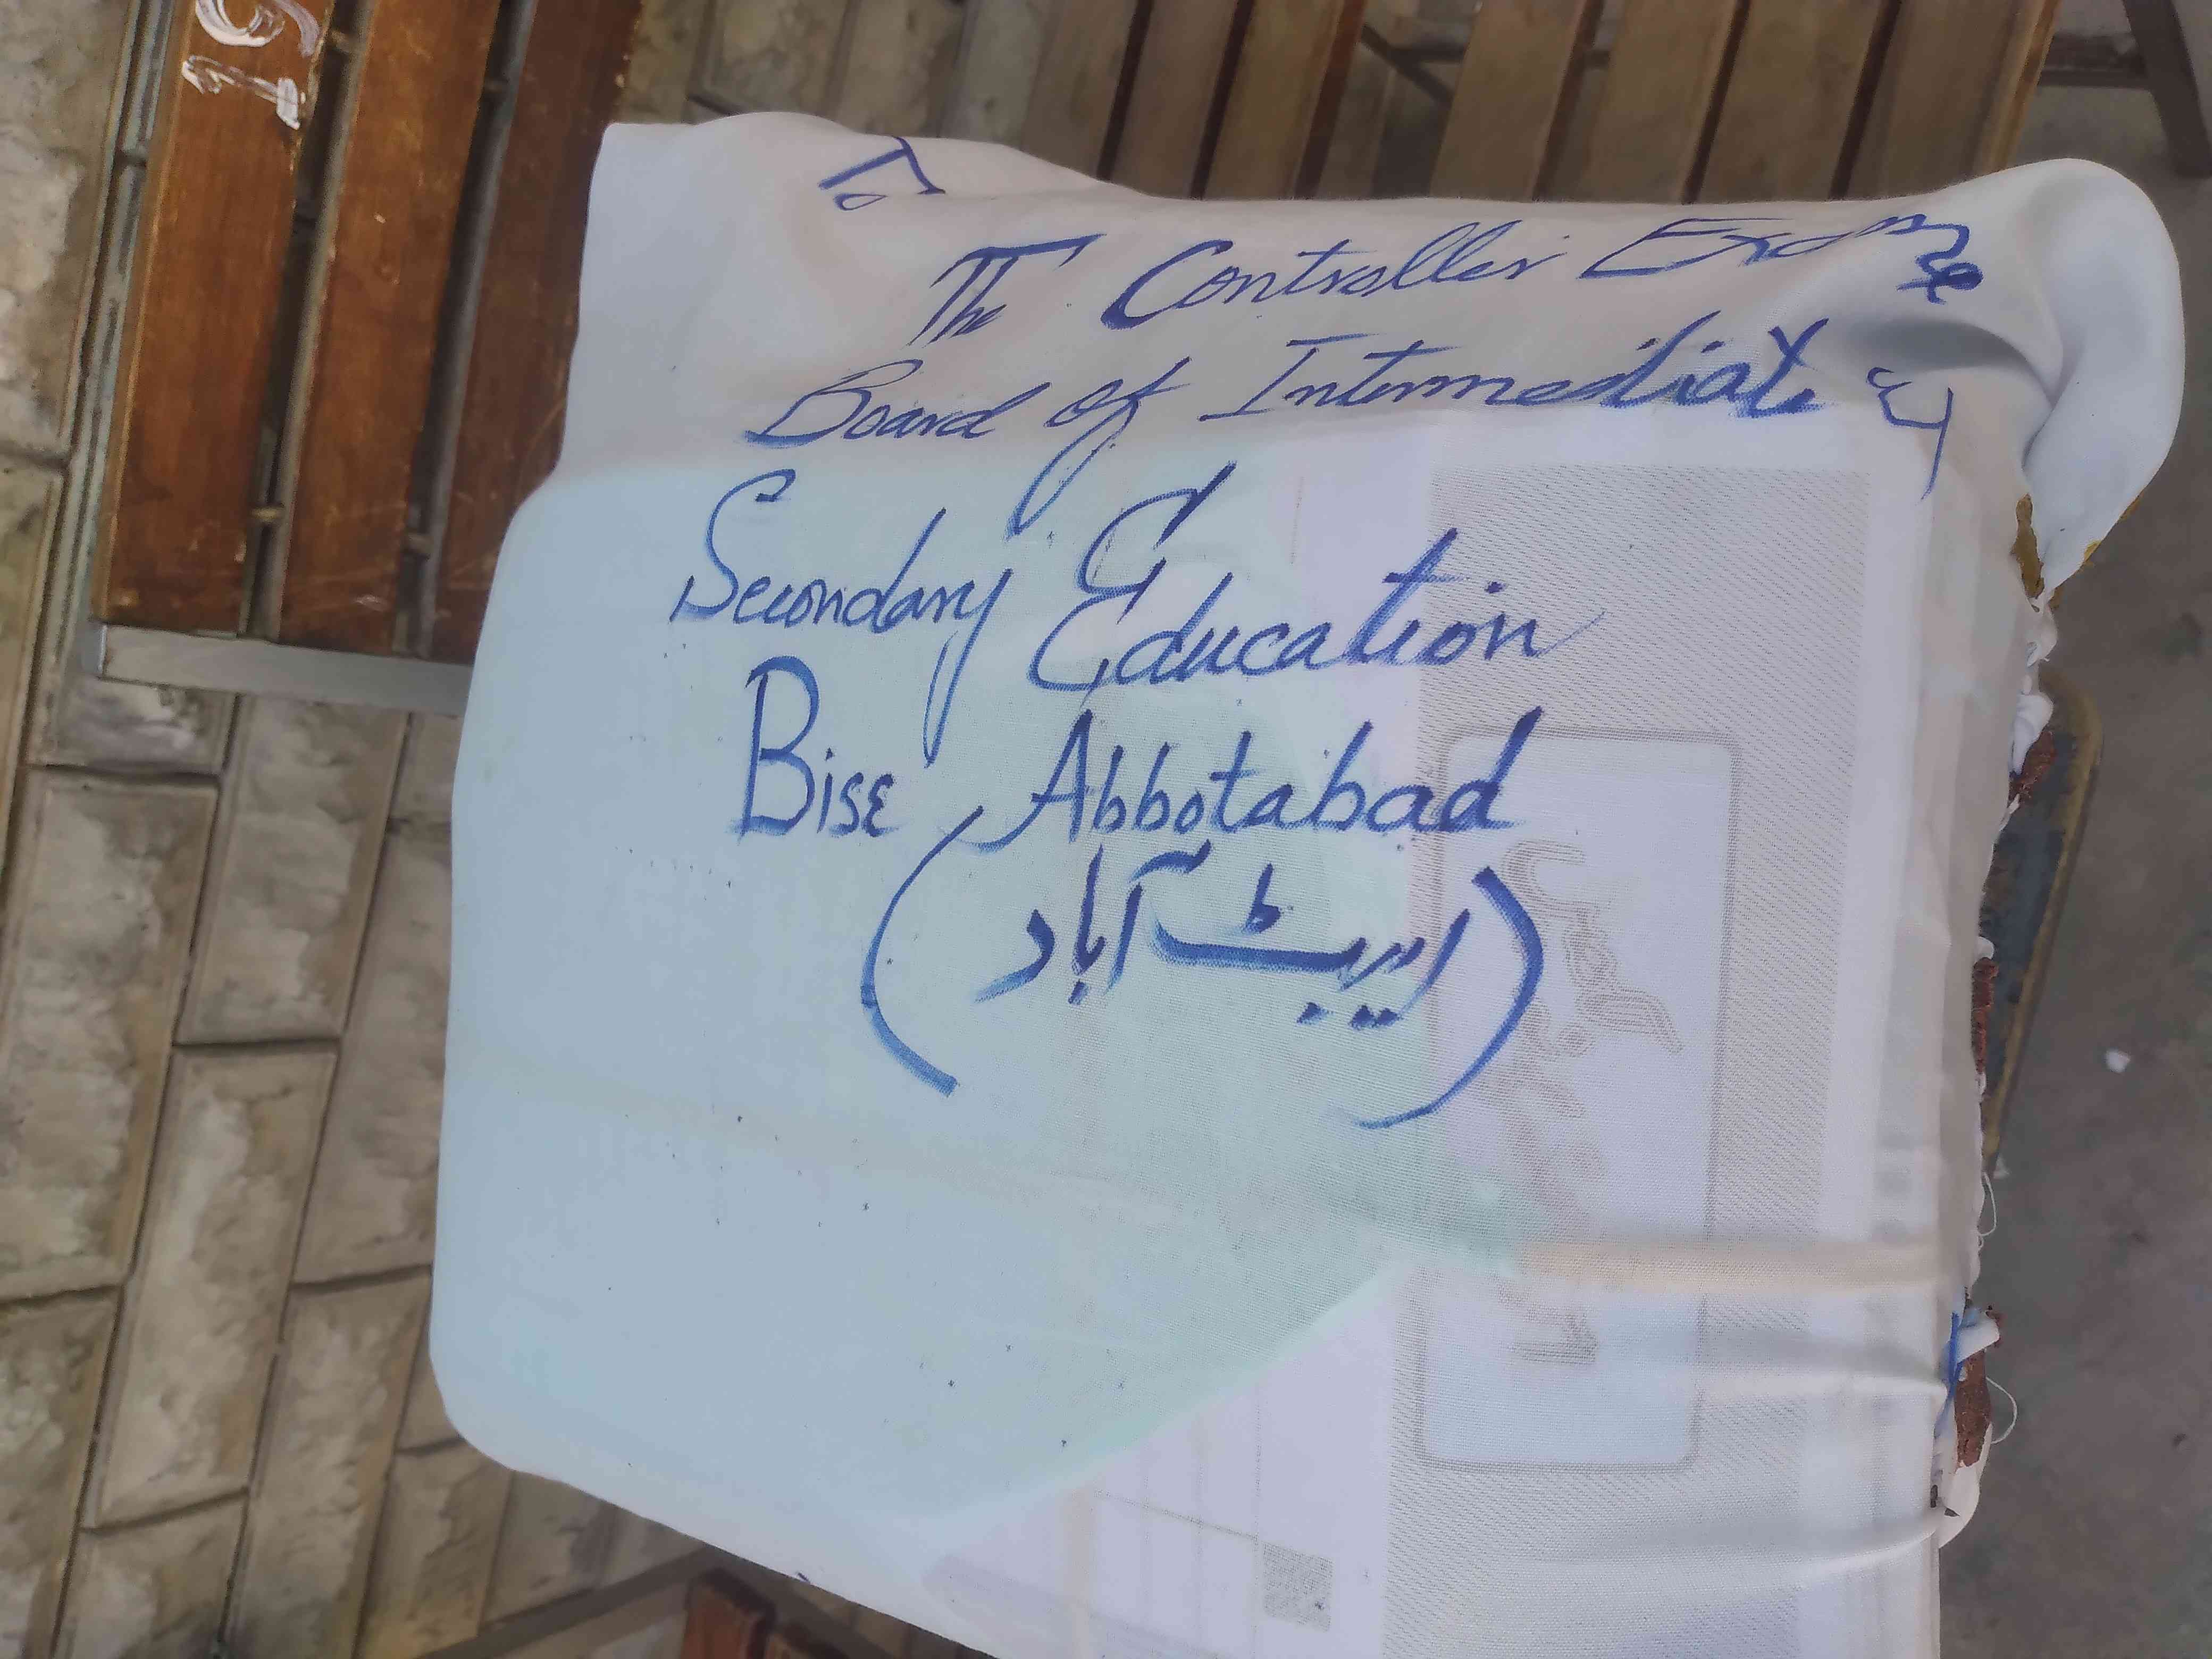 To
The Controller Exams
Board of Intermediate &
Secondary Education
BISE Abbotabad
(ایبٹ آباد)
19